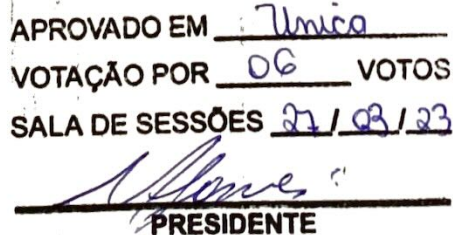 APROVADO EM Unica
VOTAÇÃO POR 06 VOTOS
SALA DE SESSÕES 27/03/23
PRESIDENTE